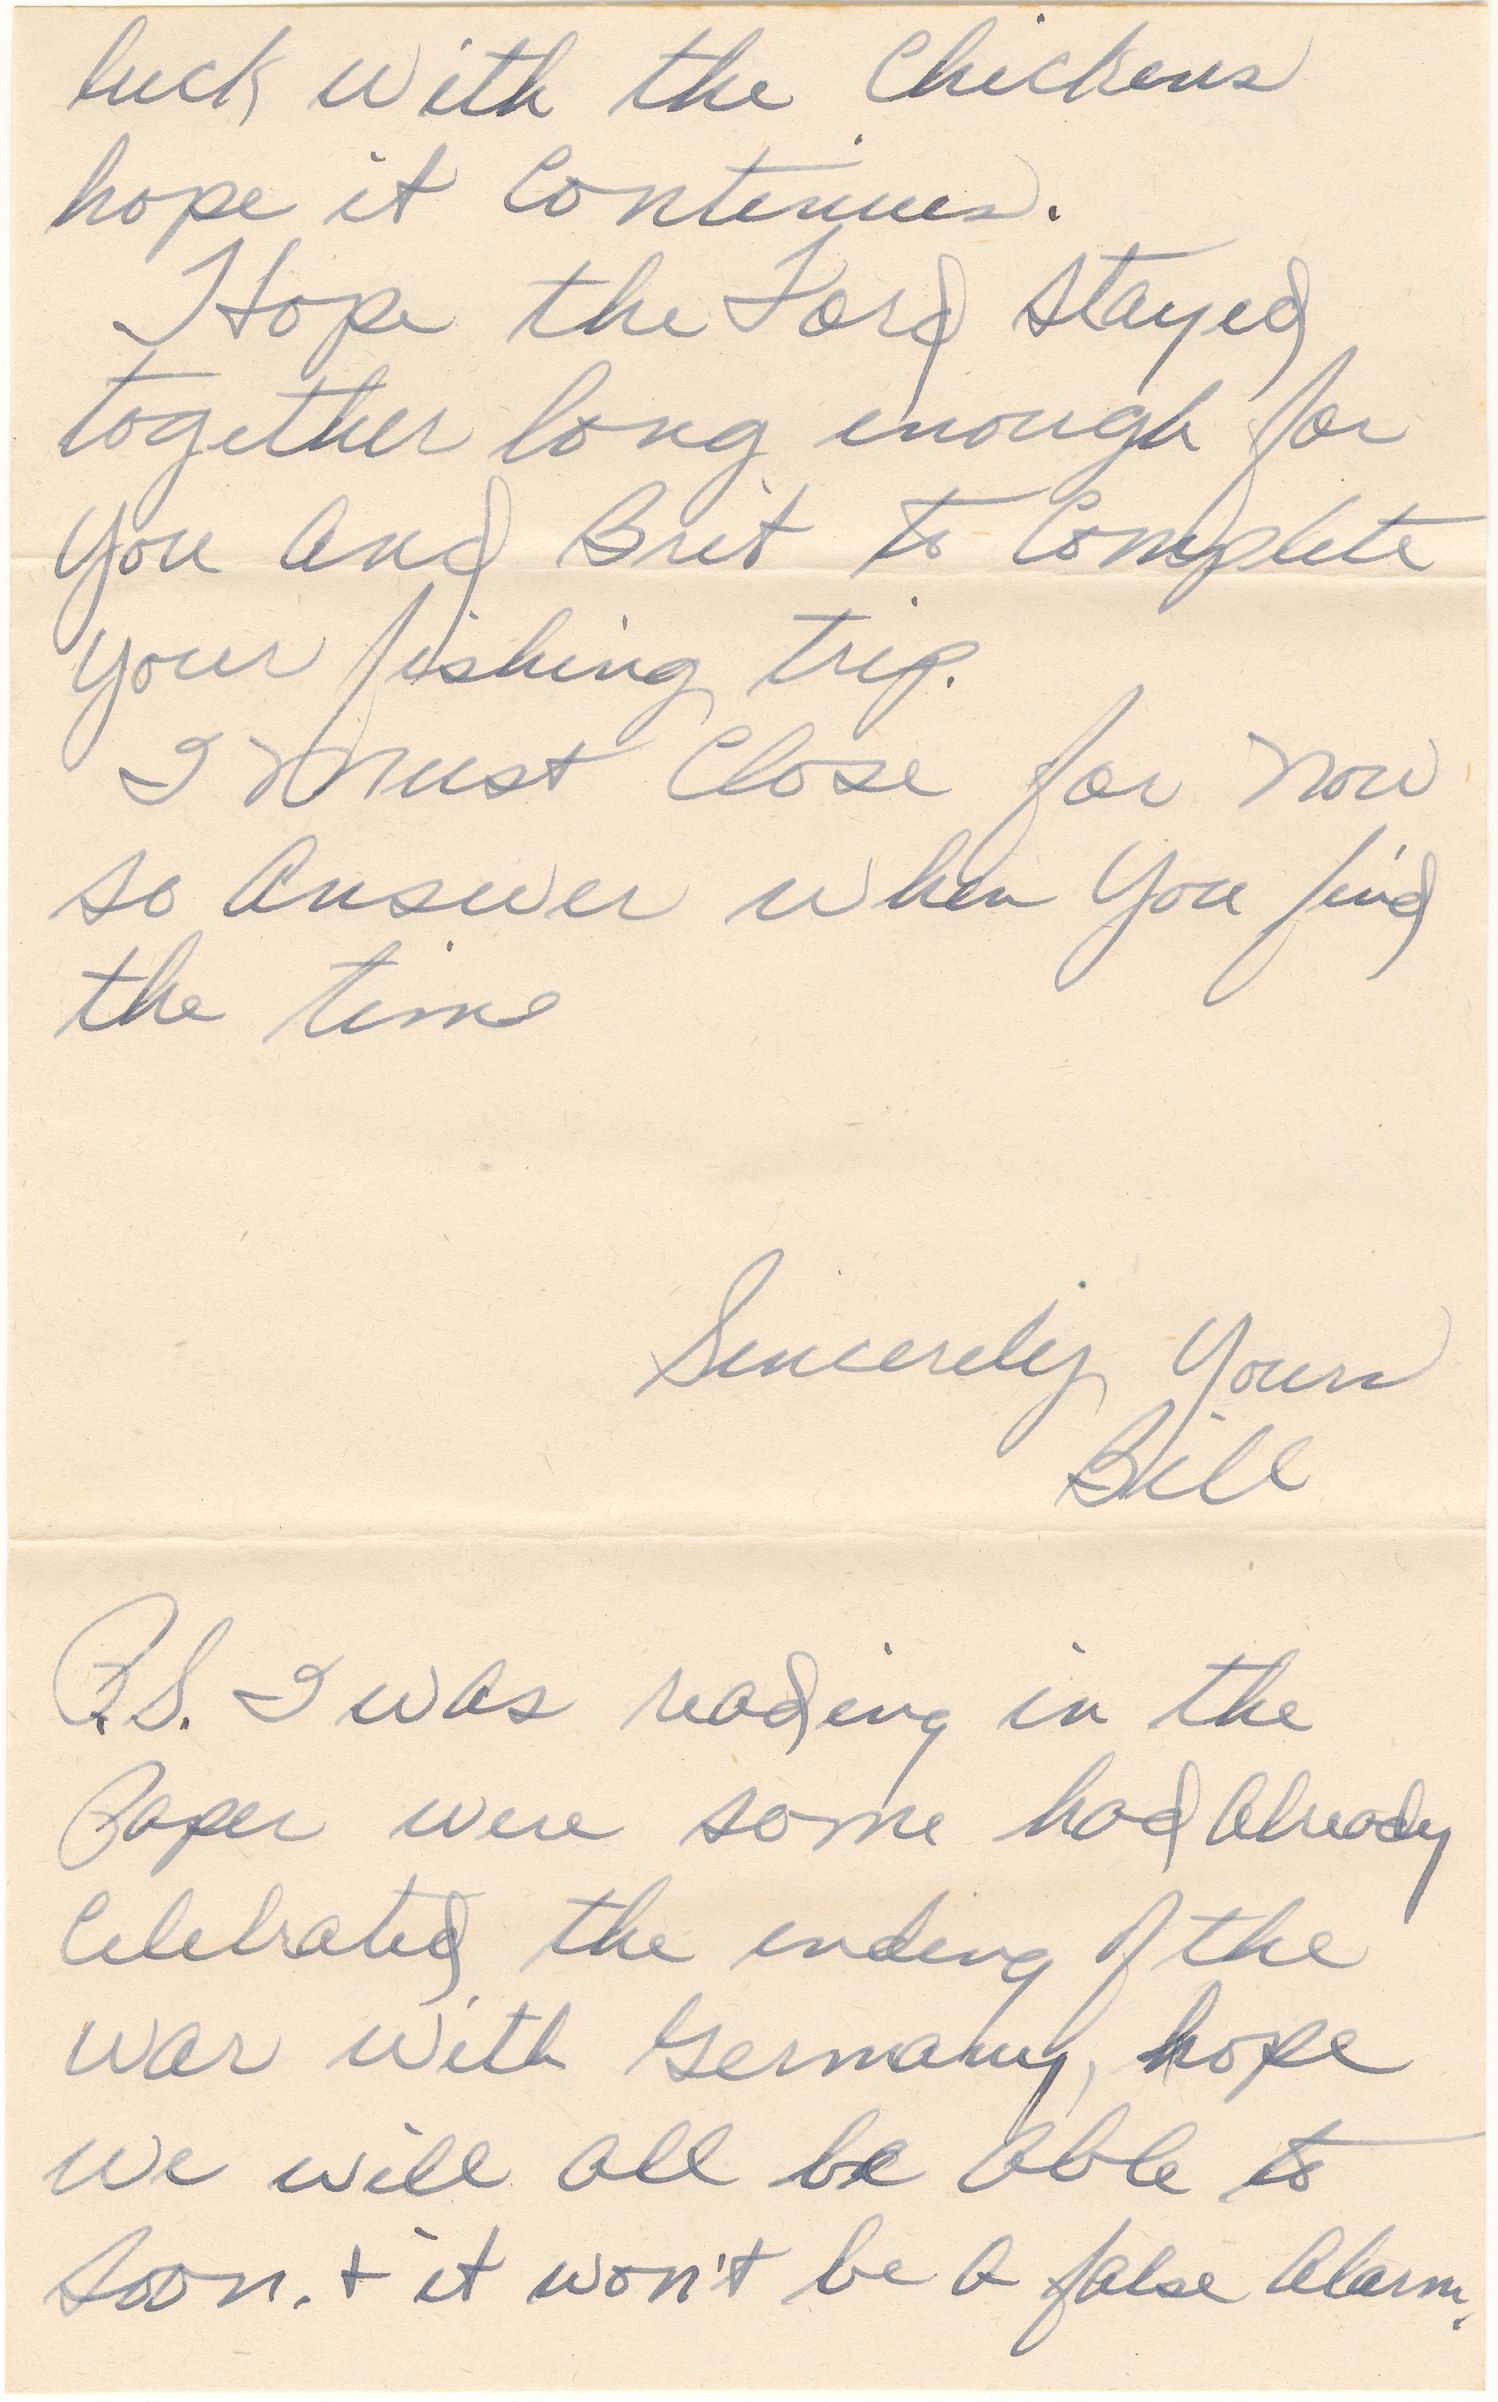 luck with the Chickens
hope it Continues.
Hope the Ford stayed
together long enough for
you and Brit to Complete
your fishing trip.
I must Close for now
so Answer when you find
the time
Sincerely Yours
Bill
P.S. I was reading in the
Paper were some had Already
Celebrated the ending of the
war with Germany, hope
we will all be able to
soon. + it won't be a false Alarm.